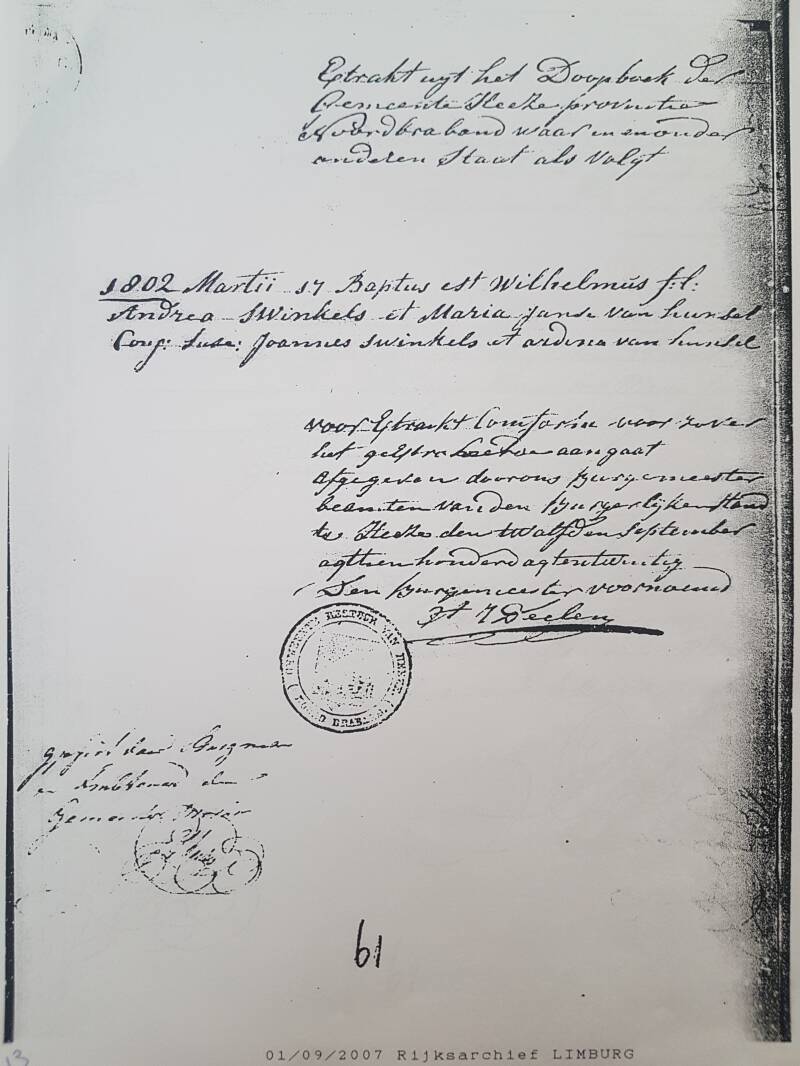 Extrakt uyt het Doopboek der
Gemeente Heeze provintie
Noordbraband waar in en onder
anderen Staat als volgt
1802 Martii 17 Baptus est Wilhelmus f:l:
Andrea Swinkels et Maria janse van hunsel
Conj: Susc: Joannes Swinkels et ardina van hunsel
voor Extrackt Comform voor zover
het geExtraheerde aangaat
afgegeven door ons Burgemeester
beamten van den Burgerlijken Stand
te Heeze den twalfden September
agttien honderd agtentwintig
Den Burgemeester voornoemd
GEMEENTE BESTUUR VAN HEEZE
(NOORD BRABAND)
Gemeente
61
13
01/09/2007 Rijksarchief LIMBURG